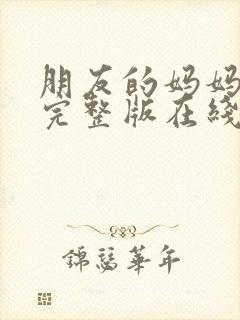 朋友的妈妈
完整版在线
锦瑟华年